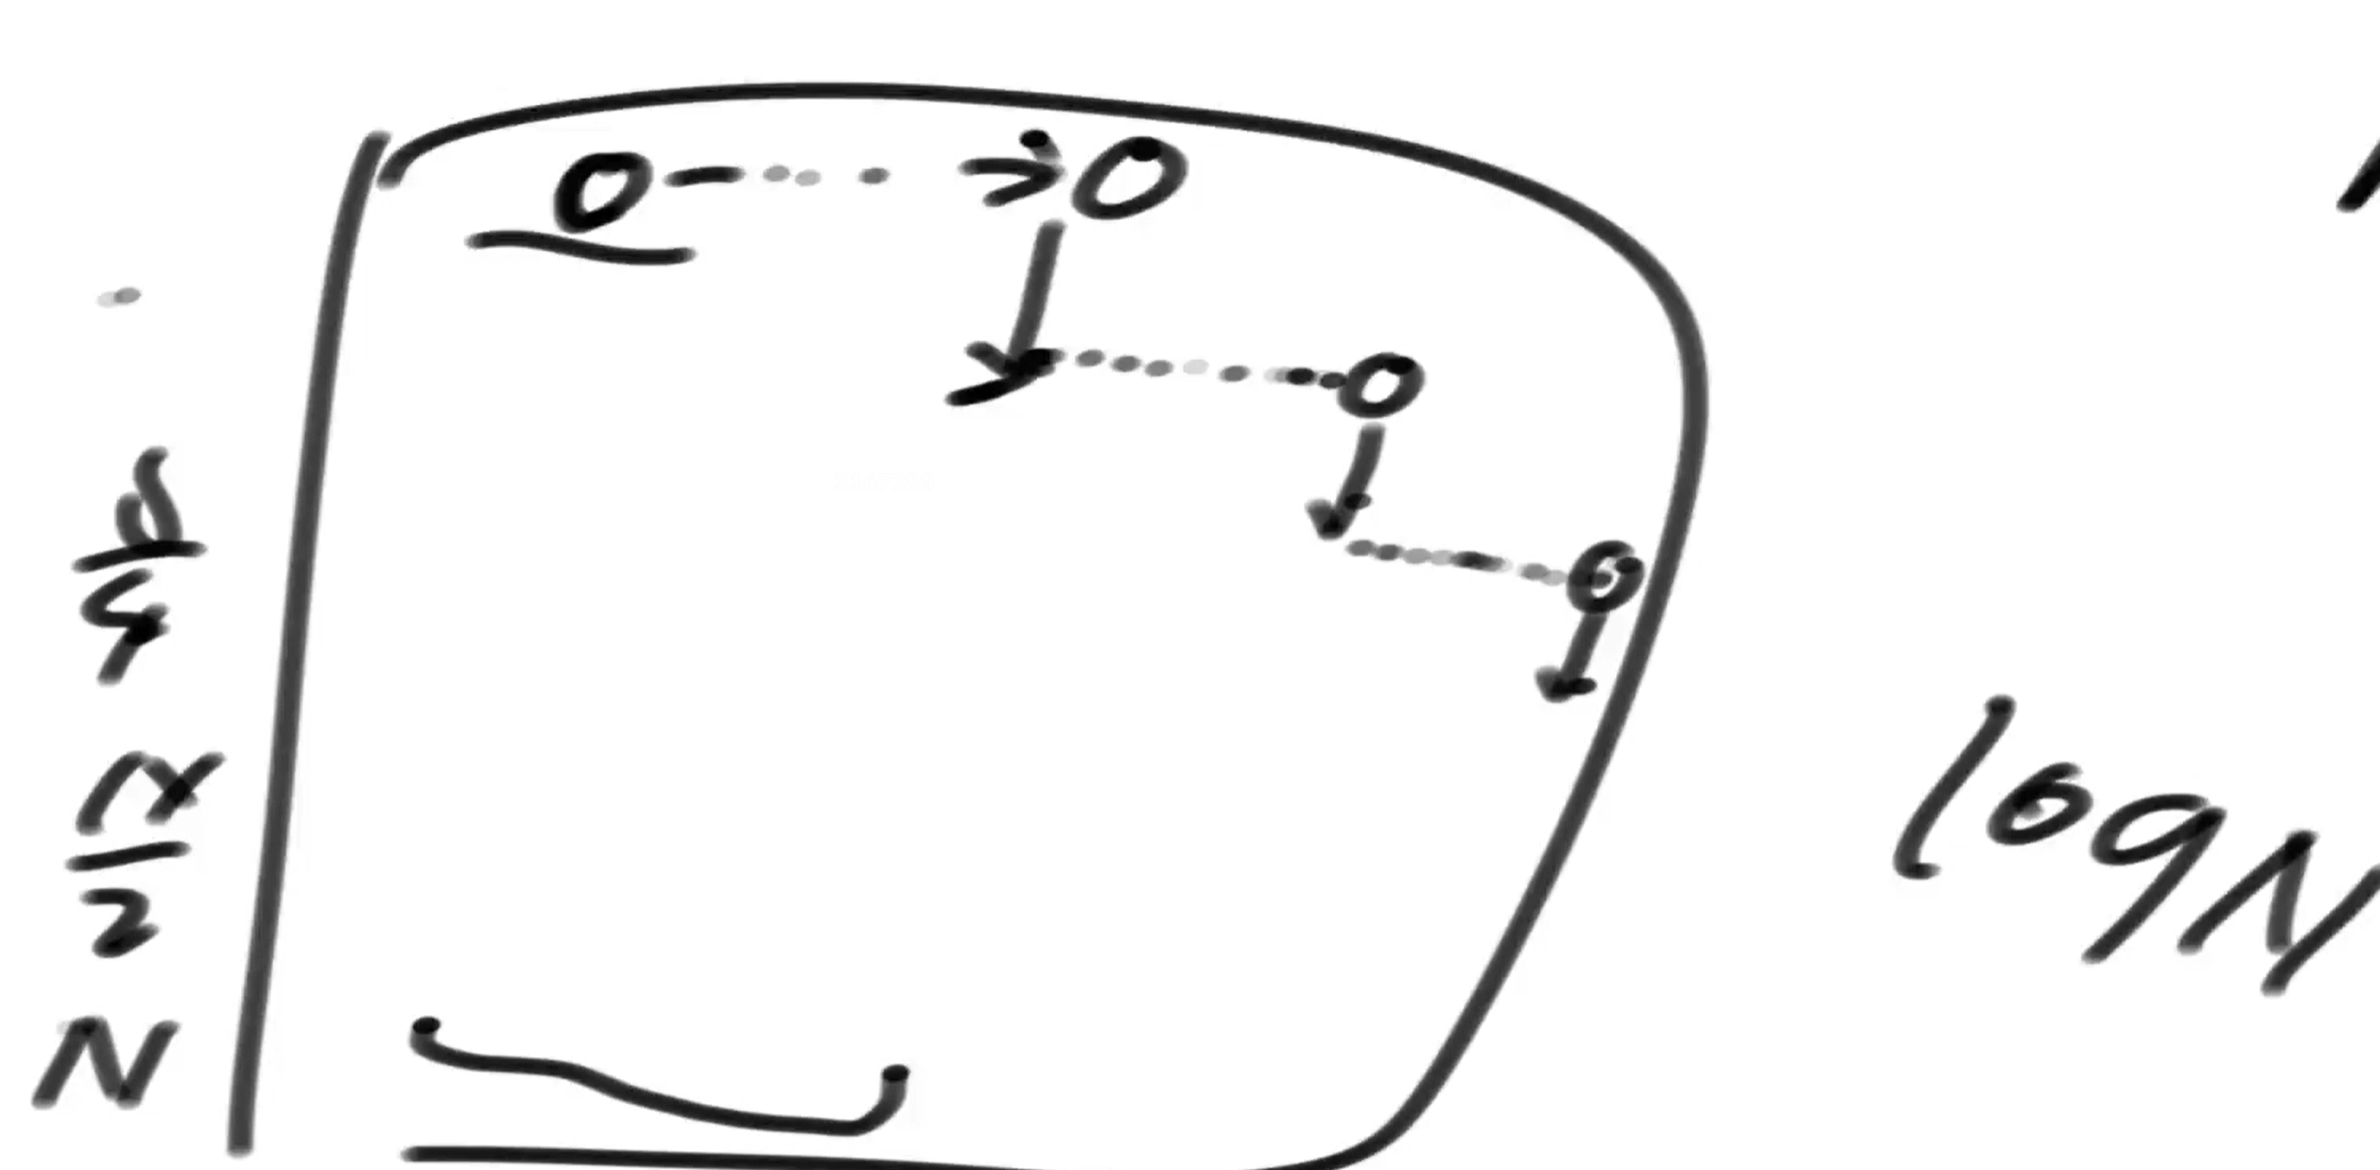 N/4
N/2
N
log N